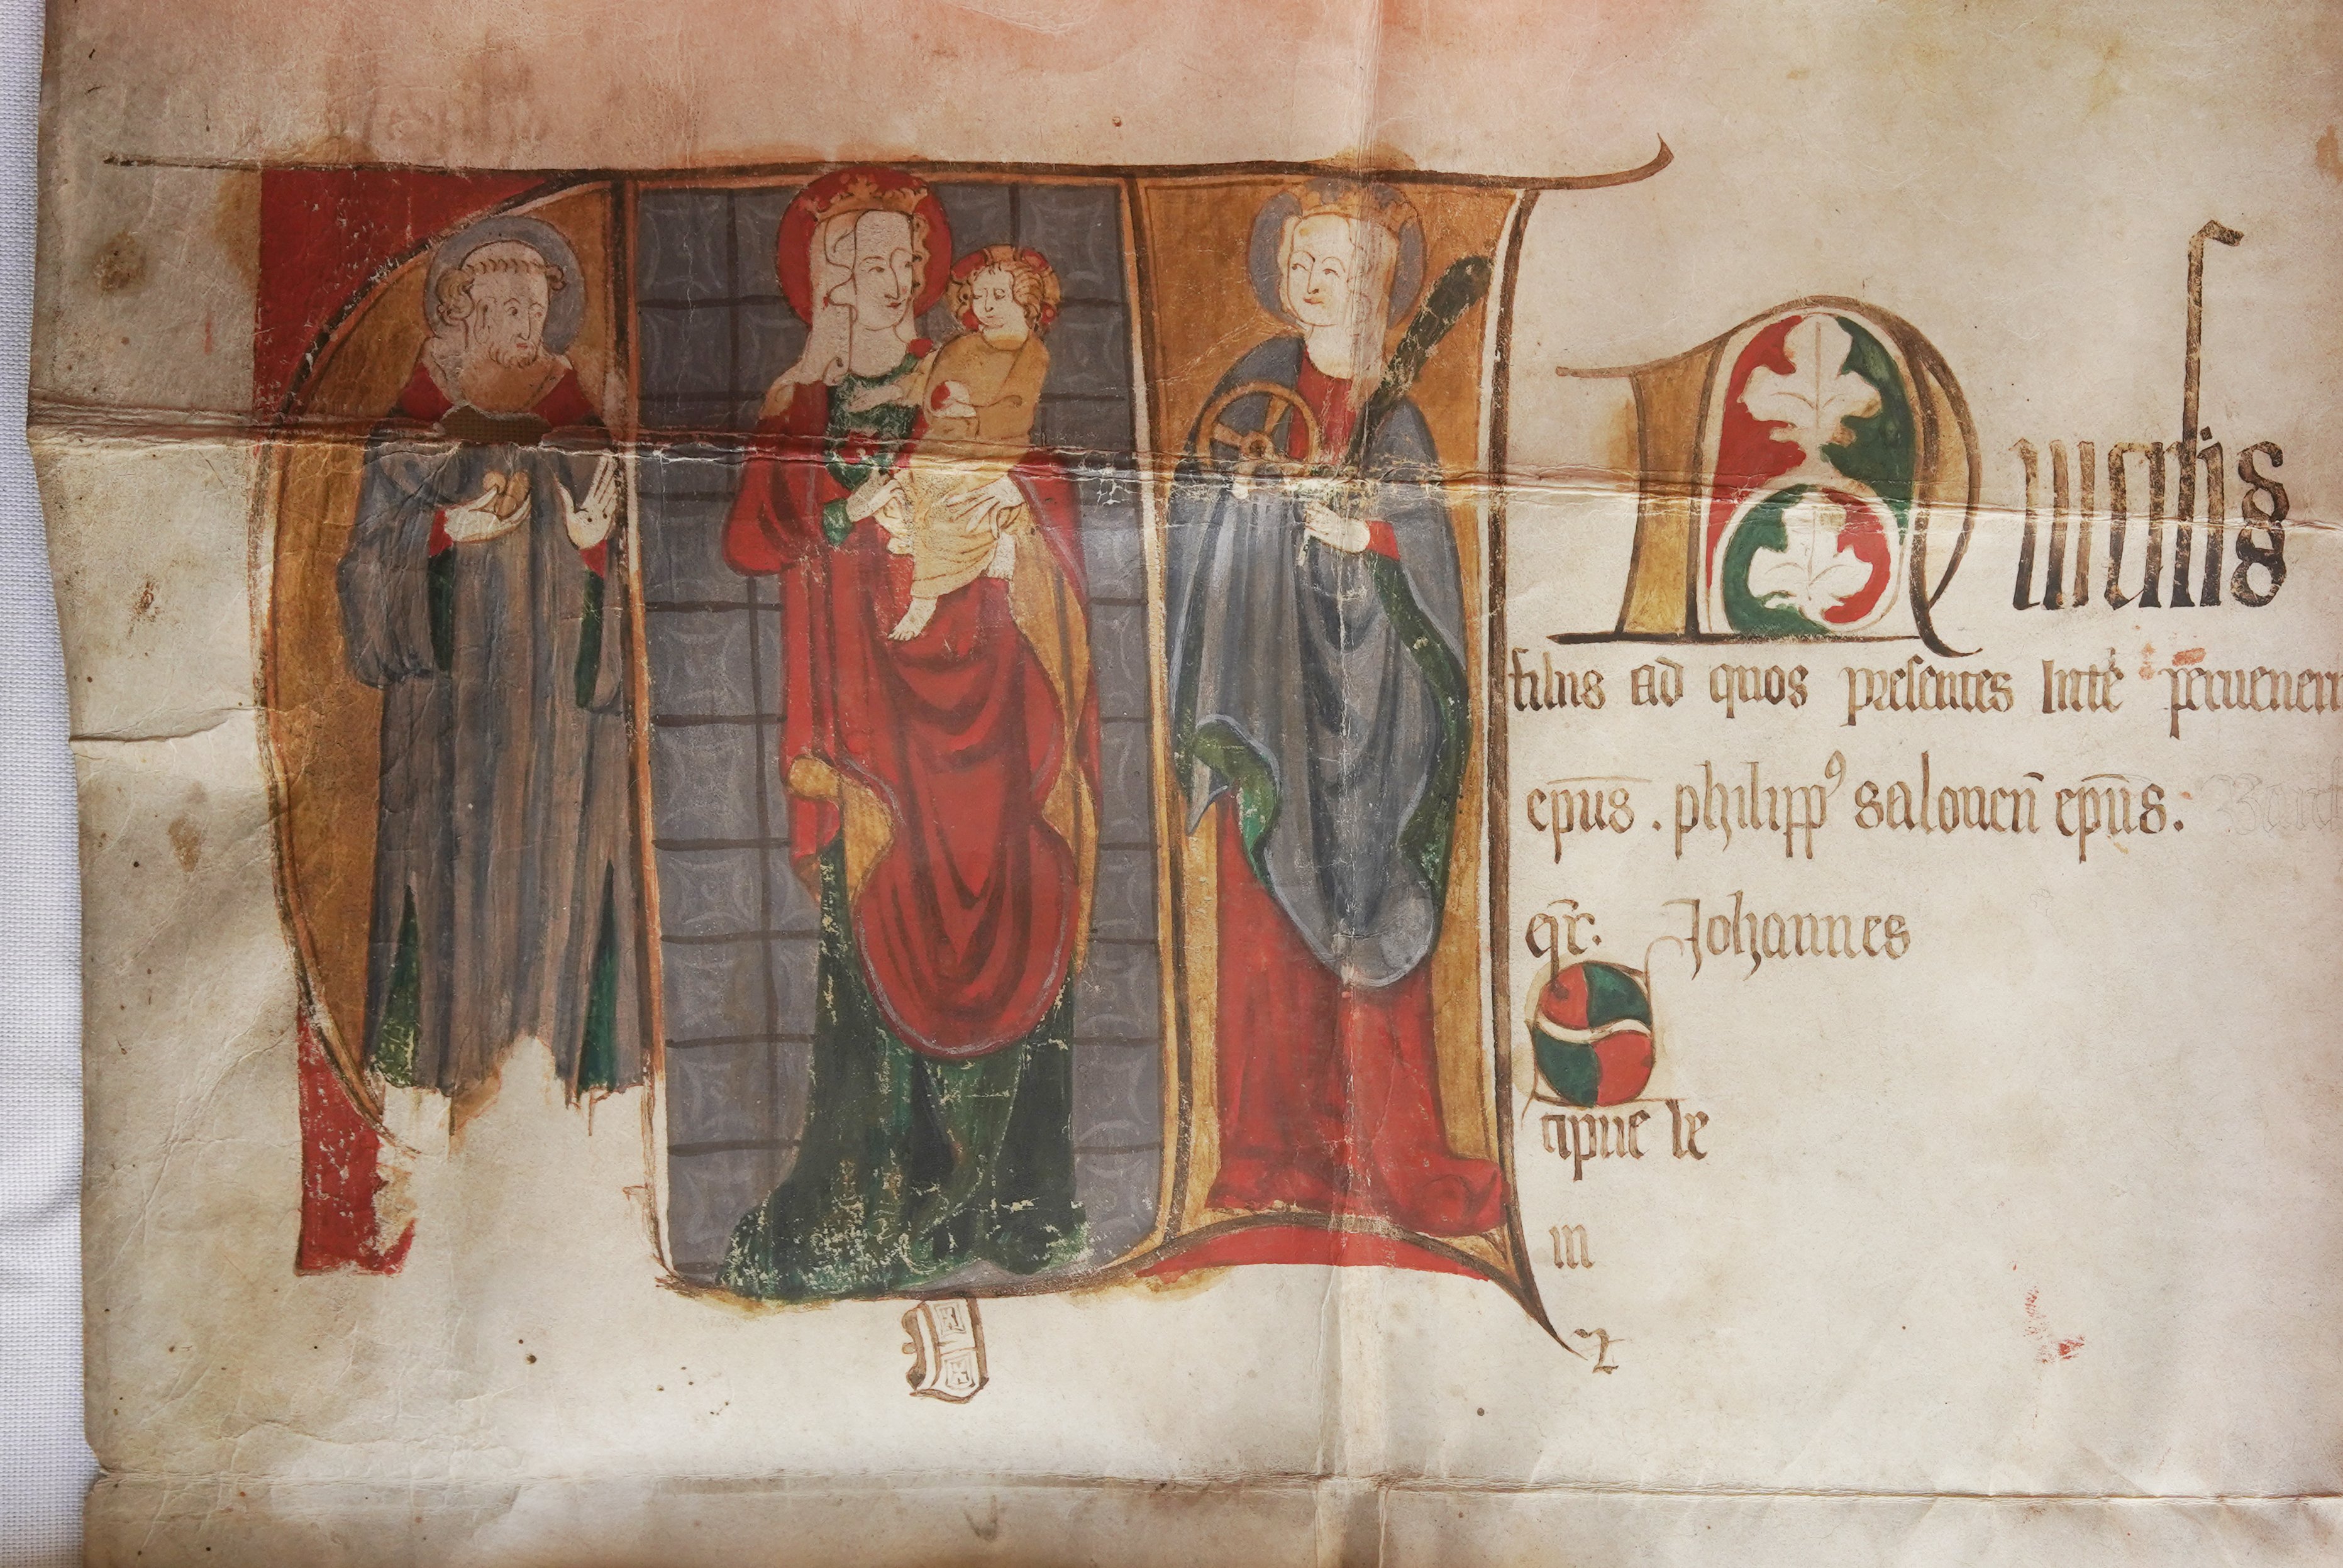 UNiuersis
filiis ad quos presentes litte peruenerin
ep̄us . philippꝰ salonen̄ ep̄us.
Johannes
S
cipue le
in